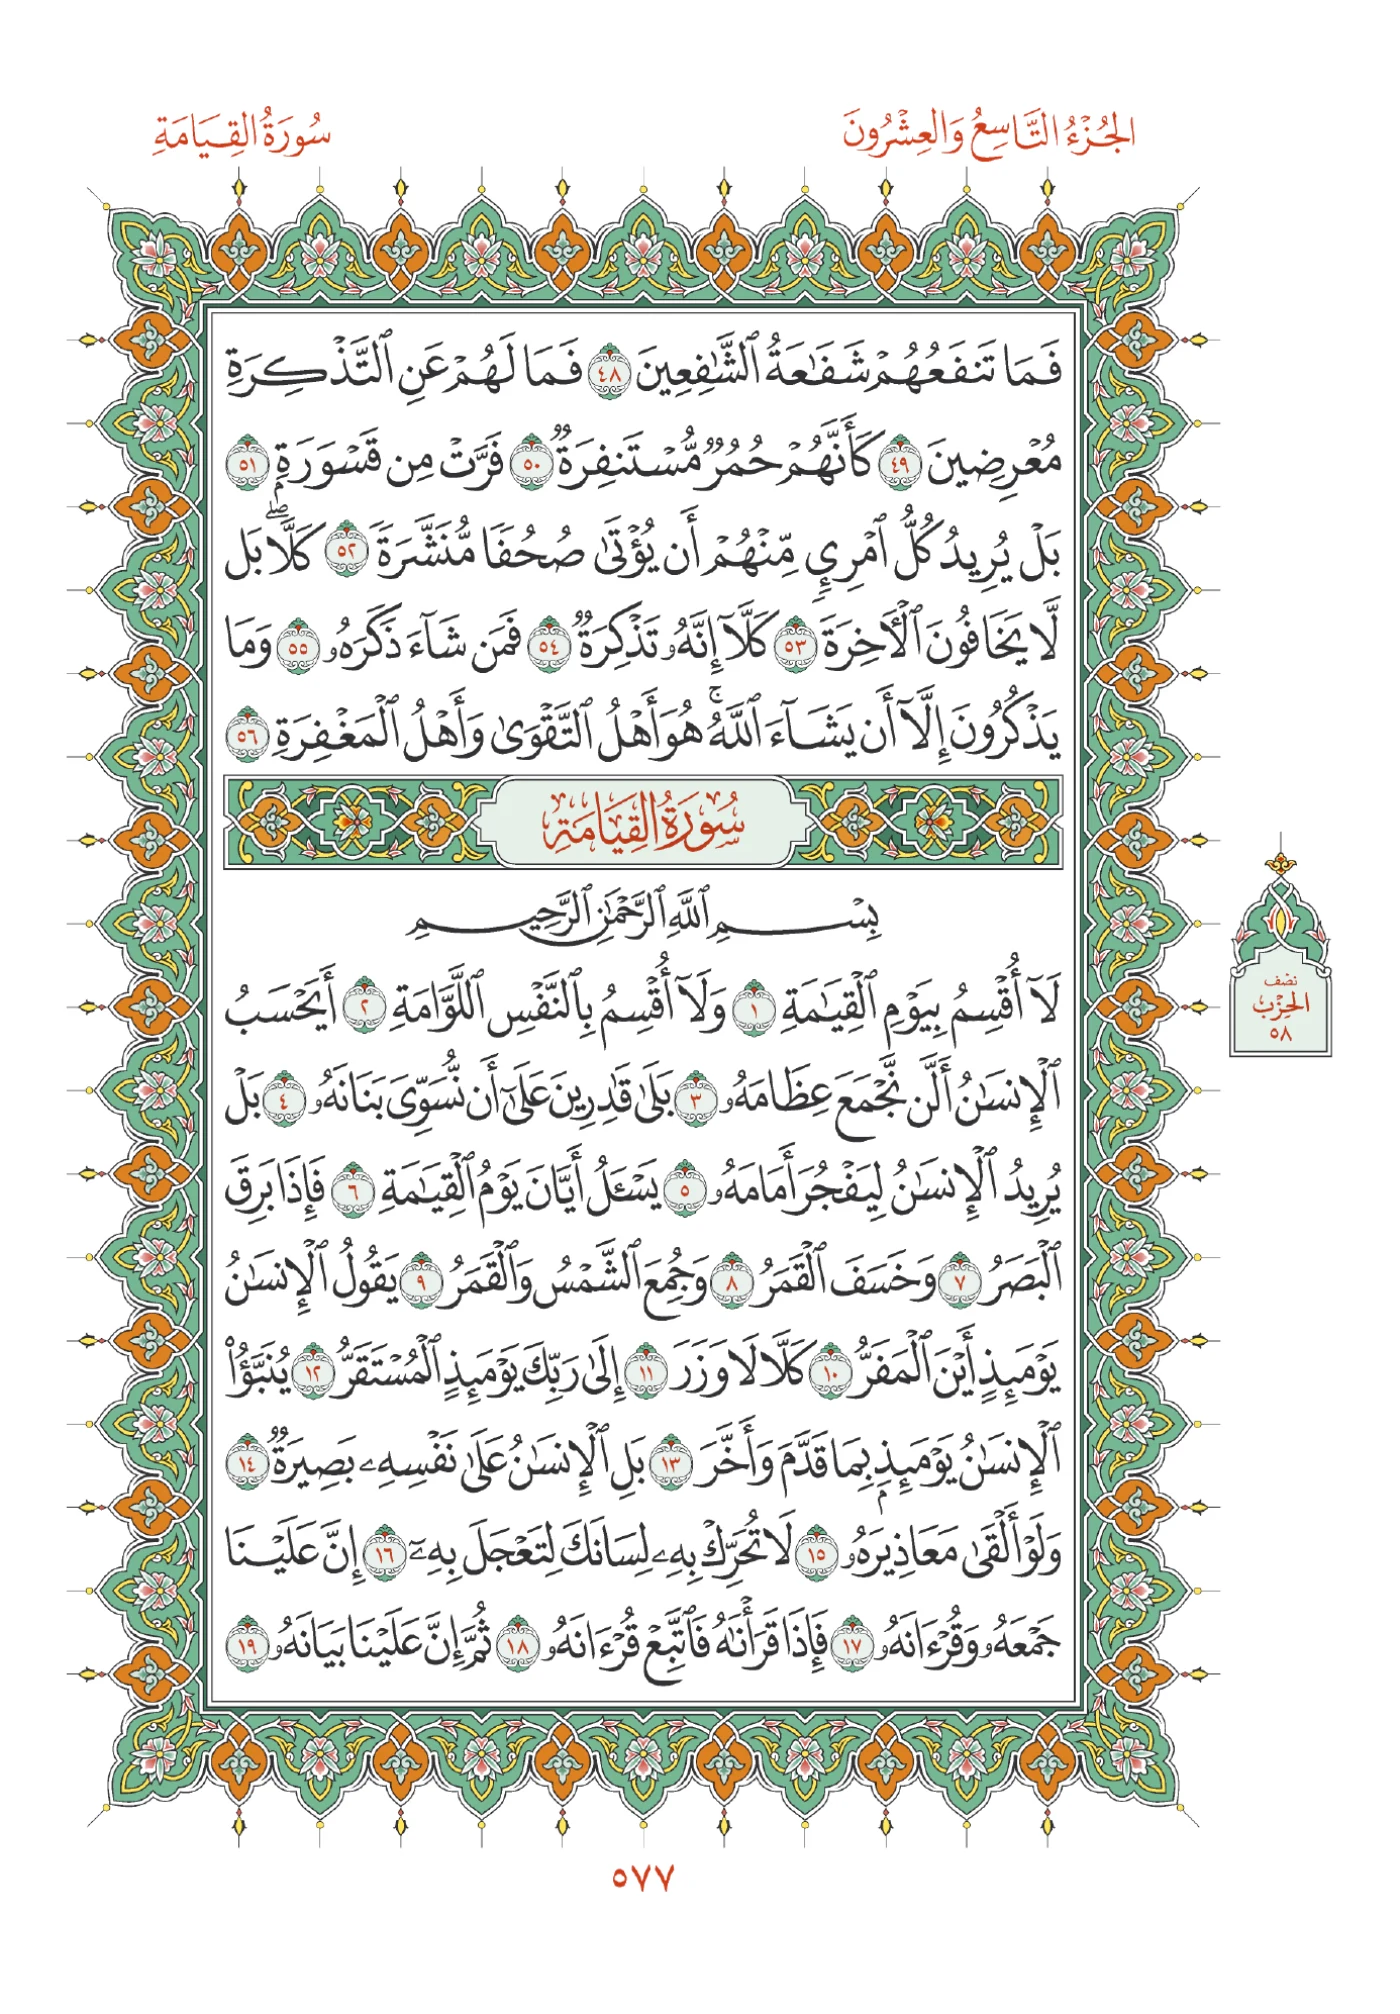 الجُزْءُ التَّاسِعُ وَالعِشْرُونَ
سُورَةُ القِيَامَةِ
فَمَا تَنفَعُهُمْ شَفَٰعَةُ ٱلشَّٰفِعِينَ ٤٨ فَمَا لَهُمْ عَنِ ٱلتَّذْكِرَةِ
مُعْرِضِينَ ٤٩ كَأَنَّهُمْ حُمُرٌ مُّسْتَنفِرَةٌ ٥٠ فَرَّتْ مِن قَسْوَرَةٍۭ ٥١
بَلْ يُرِيدُ كُلُّ ٱمْرِئٍ مِّنْهُمْ أَن يُؤْتَىٰ صُحُفًا مُّنَشَّرَةً ٥٢ كَلَّاۖ بَل
لَّا يَخَافُونَ ٱلْأٓخِرَةَ ٥٣ كَلَّآ إِنَّهُۥ تَذْكِرَةٌ ٥٤ فَمَن شَآءَ ذَكَرَهُۥ ٥٥ وَمَا
يَذْكُرُونَ إِلَّآ أَن يَشَآءَ ٱللَّهُۚ هُوَ أَهْلُ ٱلتَّقْوَىٰ وَأَهْلُ ٱلْمَغْفِرَةِ ٥٦
سُورَةُ القِيَامَةِ
بِسْمِ ٱللَّهِ ٱلرَّحْمَٰنِ ٱلرَّحِيمِ
لَآ أُقْسِمُ بِيَوْمِ ٱلْقِيَٰمَةِ ١ وَلَآ أُقْسِمُ بِٱلنَّفْسِ ٱللَّوَّامَةِ ٢ أَيَحْسَبُ
ٱلْإِنسَٰنُ أَلَّن نَّجْمَعَ عِظَامَهُۥ ٣ بَلَىٰ قَٰدِرِينَ عَلَىٰٓ أَن نُّسَوِّىَ بَنَانَهُۥ ٤ بَلْ
يُرِيدُ ٱلْإِنسَٰنُ لِيَفْجُرَ أَمَامَهُۥ ٥ يَسْـَٔلُ أَيَّانَ يَوْمُ ٱلْقِيَٰمَةِ ٦ فَإِذَا بَرِقَ
ٱلْبَصَرُ ٧ وَخَسَفَ ٱلْقَمَرُ ٨ وَجُمِعَ ٱلشَّمْسُ وَٱلْقَمَرُ ٩ يَقُولُ ٱلْإِنسَٰنُ
يَوْمَئِذٍ أَيْنَ ٱلْمَفَرُّ ١٠ كَلَّا لَا وَزَرَ ١١ إِلَىٰ رَبِّكَ يَوْمَئِذٍ ٱلْمُسْتَقَرُّ ١٢ يُنَبَّؤُا۟
ٱلْإِنسَٰنُ يَوْمَئِذٍۭ بِمَا قَدَّمَ وَأَخَّرَ ١٣ بَلِ ٱلْإِنسَٰنُ عَلَىٰ نَفْسِهِۦ بَصِيرَةٌ ١٤
وَلَوْ أَلْقَىٰ مَعَاذِيرَهُۥ ١٥ لَا تُحَرِّكْ بِهِۦ لِسَانَكَ لِتَعْجَلَ بِهِۦٓ ١٦ إِنَّ عَلَيْنَا
جَمْعَهُۥ وَقُرْءَانَهُۥ ١٧ فَإِذَا قَرَأْنَٰهُ فَٱتَّبِعْ قُرْءَانَهُۥ ١٨ ثُمَّ إِنَّ عَلَيْنَا بَيَانَهُۥ ١٩
نصف
الحزب
٥٨
٥٧٧